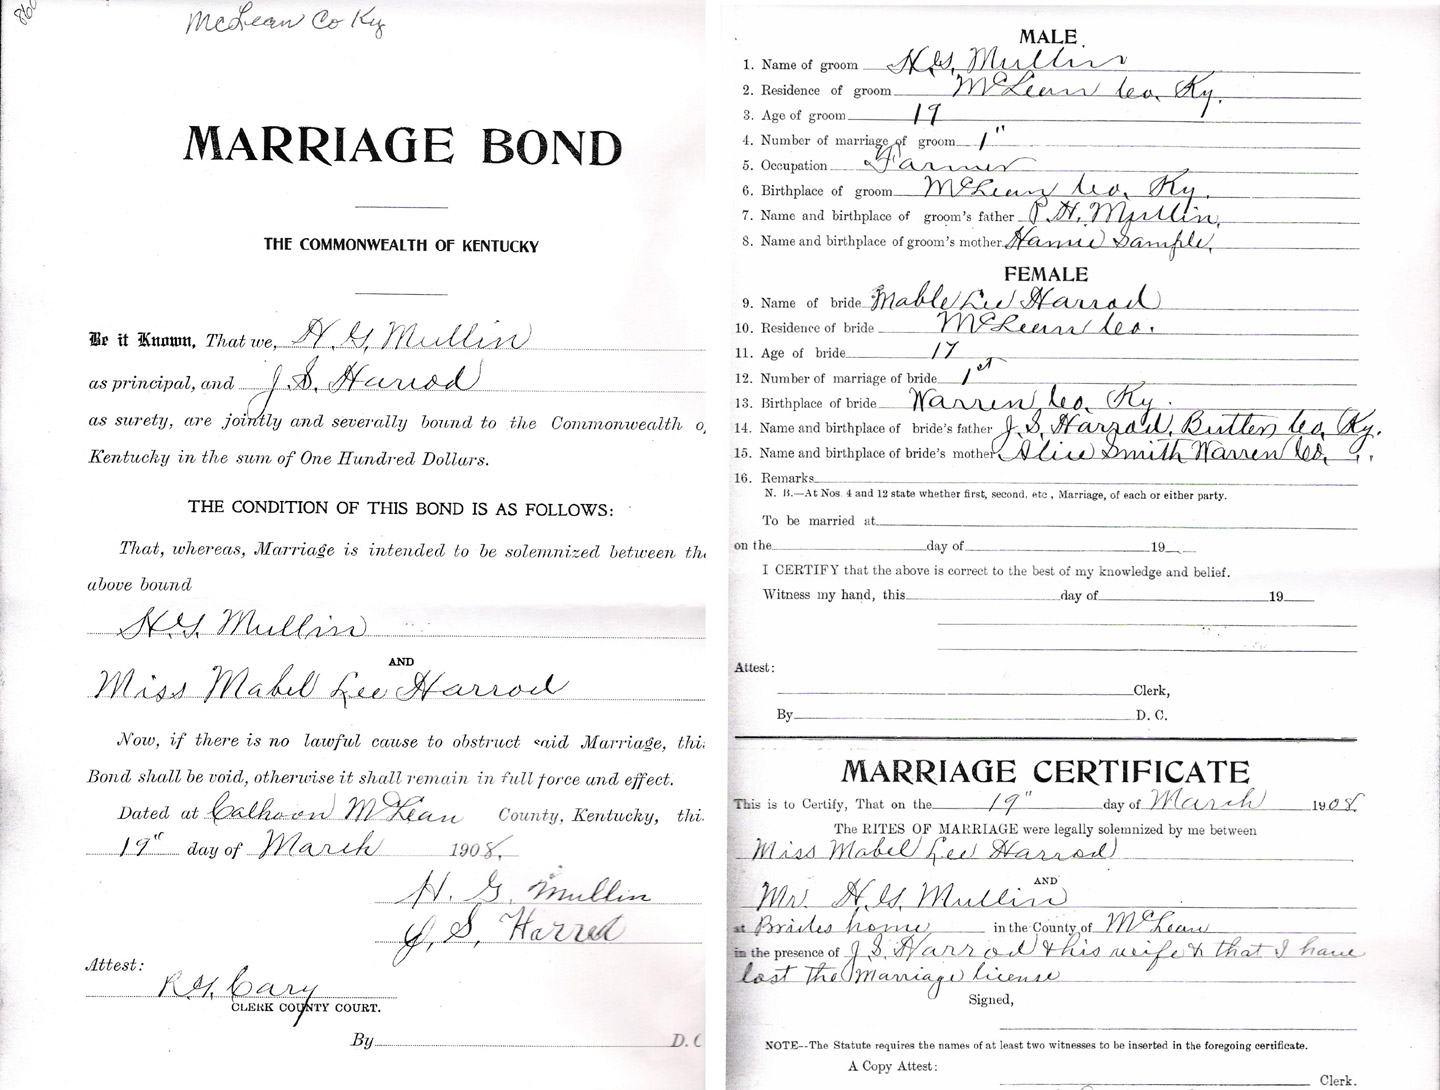 McLean Co Ky
MARRIAGE BOND
THE COMMONWEALTH OF KENTUCKY
Be it Known, That we, H. G. Mullin
as principal, and J. S. Harrod
as surety, are jointly and severally bound to the Commonwealth o
Kentucky in the sum of One Hundred Dollars.
THE CONDITION OF THIS BOND IS AS FOLLOWS:
That, whereas, Marriage is intended to be solemnized between the
above bound
H. G. Mullin
AND
Miss Mabel Lee Harrod
Now, if there is no lawful cause to obstruct said Marriage, thi
Bond shall be void, otherwise it shall remain in full force and effect.
Dated at Calhoon McLean County, Kentucky, thi
19" day of March 1908.
H. G. Mullin
J. S. Harred
Attest:
R. G. Cary
CLERK COUNTY COURT.
By D. C
MALE
1. Name of groom H. G. Mullin
2. Residence of groom McLean Co. Ky.
3. Age of groom 19
4. Number of marriage of groom 1"
5. Occupation Farmer
6. Birthplace of groom McLean Co. Ky.
7. Name and birthplace of groom's father P. H. Mullin,
8. Name and birthplace of groom's mother Sample,
FEMALE
9. Name of bride Mable Lee Harrod
10. Residence of bride McLean Co.
11. Age of bride 17
12. Number of marriage of bride 1st
13. Birthplace of bride Warren Co. Ky.
14. Name and birthplace of bride's father J. S. Harrod, Butler Co. Ky.
15. Name and birthplace of bride's mother Alice Smith Warren Co. ,,
16. Remarks
N. B.—At Nos. 4 and 12 state whether first, second, etc., Marriage, of each or either party.
To be married at
on the day of 19
I CERTIFY that the above is correct to the best of my knowledge and belief.
Witness my hand, this day of 19
Attest:
Clerk,
By D. C.
MARRIAGE CERTIFICATE
This is to Certify, That on the 19" day of March 1908.
The RITES OF MARRIAGE were legally solemnized by me between
Miss Mabel Lee Harrod
AND
Mr. H. G. Mullin
at Brides home in the County of McLean
in the presence of J. S. Harrod & his wife & that I have
lost the Marriage license
Signed,
NOTE--The Statute requires the names of at least two witnesses to be inserted in the foregoing certificate.
A Copy Attest:
Clerk.